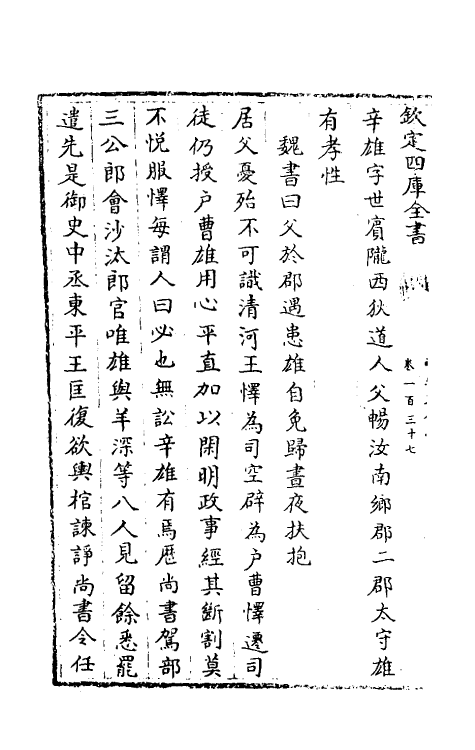 欽定四庫全書
卷一百三十七
辛雄字世賓隴西狄道人父暢汝南鄉郡二郡太守雄
有孝性
魏書曰父於郡遇患雄自免歸晝夜扶抱
居父憂殆不可識清河王懌為司空辟為户曹懌遷司
徒仍授户曹雄用心平直加以閑明政事經其斷割莫
不悦服懌每謂人曰必也無訟辛雄有焉歴尚書駕部
三公郎會沙汰郎官唯雄與羊深等八人見留餘悉罷
遣先是御史中丞東平王匡復欲輿棺諫諍尚書令任